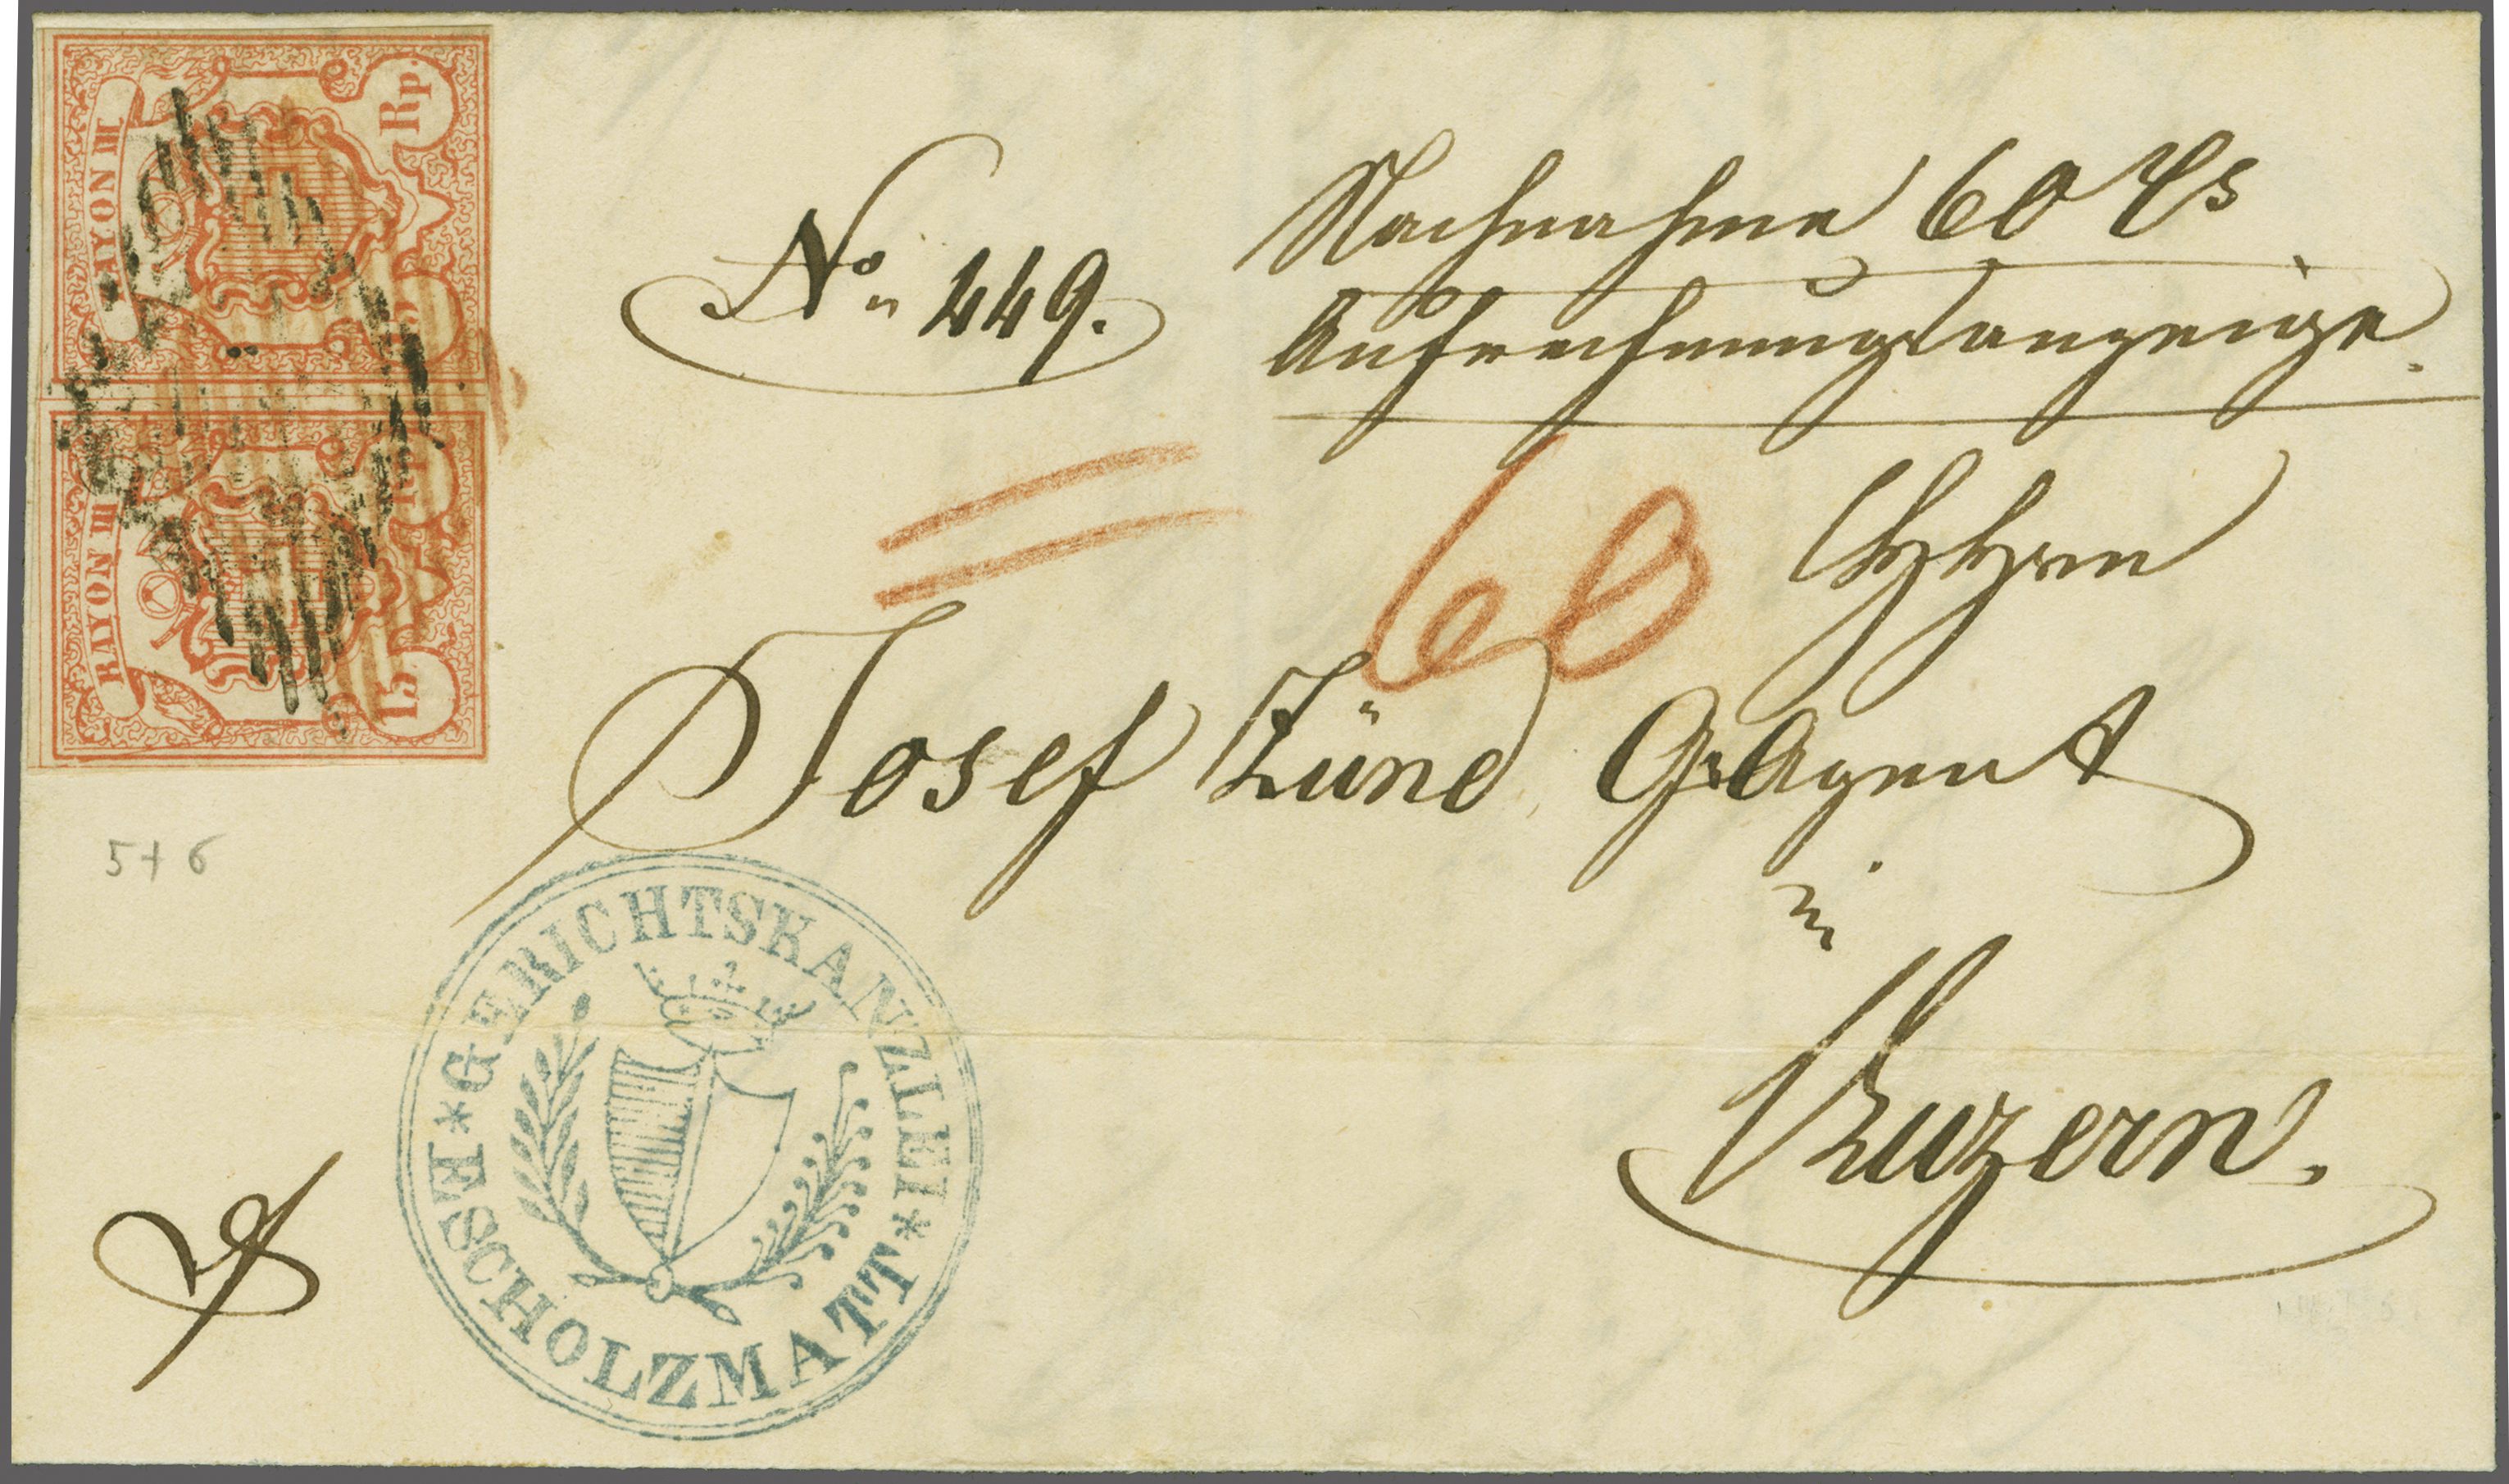 RAYON III
15 Rp.
RAYON III
15 Rp.
No. 449.
Nachnahme 60 Cs
Aufrechnungsanzeige.
60
Josef Zünd Gs Agent
in
Luzern.
5+6
* GERICHTSKANZLEI *
ESCHOLZMATT